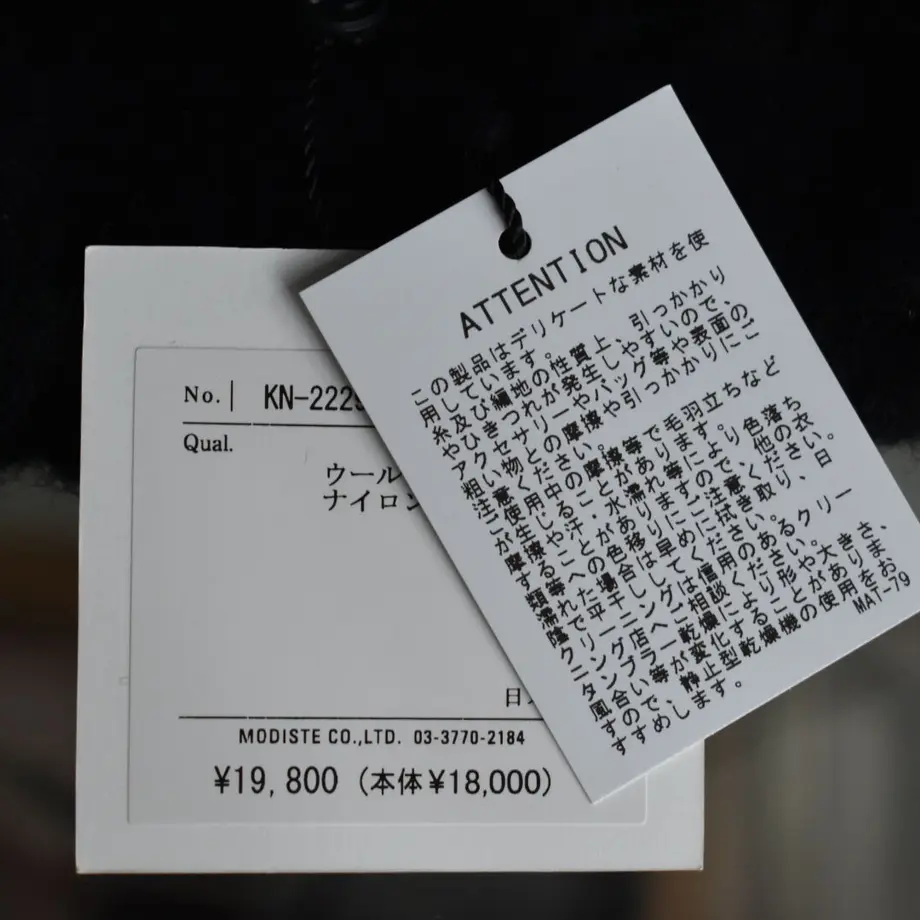 No. KN-222
Qual.
ウール
ナイロン
日
MODISTE CO.,LTD. 03-3770-2184
¥19,800 (本体¥18,000)
ATTENTION
この製品はデリケートな素材を使
用しています。
糸及び編地の性質上、引っかかり
やひきつれが発生しやすいので、
アクセサリーやバッグ等や表面の
粗い物との摩擦や引っかかりにご
注意ください。
ご使用中の摩擦等で毛羽立ちなど
が生じることがあります。
摩擦や汗・水濡れ等により色落ち
することがありますので、他の衣
類等への色移りにご注意ください。
濡れた場合は早めに拭き取り、日
陰で平干ししてください。
クリーニングは信用のあるクリー
ニング店へご相談ください。
タンブラー乾燥により形や大きさ、
風合い等が変化することがありま
すので、静止型乾燥機の使用をお
すすめします。
MAT-79